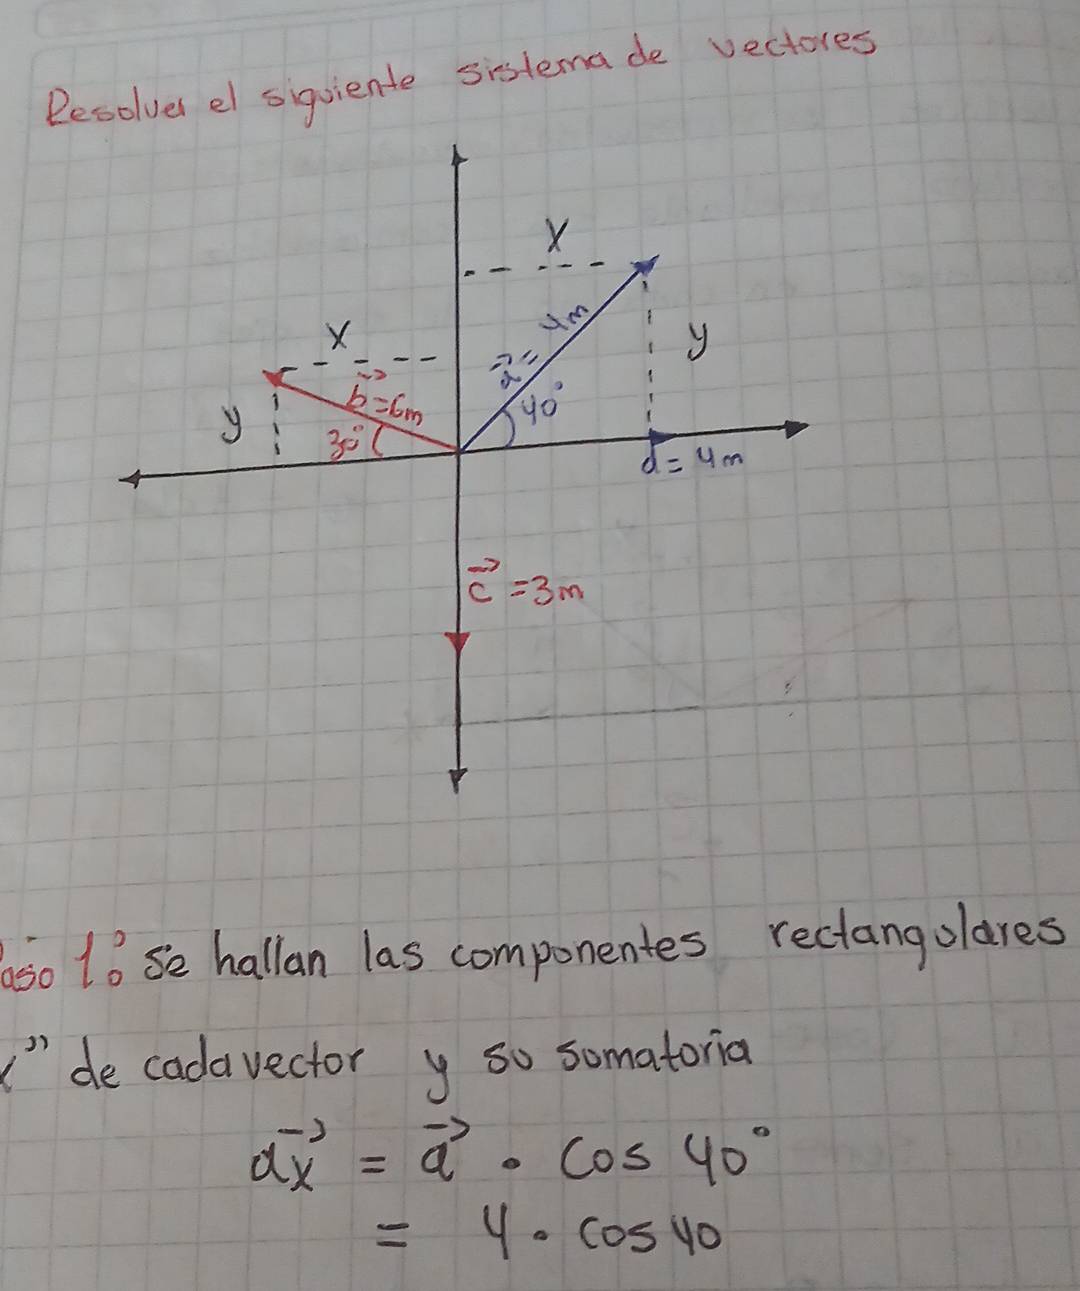 Resolver el siguiente sistema de vectores
X
X
y
y
a⃗ = 4m
40°
b⃗ = 6m
30°
d = 4m
c⃗ = 3m
Paso 1: se hallan las componentes rectangulares
x" de cada vector y su somatoria
a⃗x = a⃗ . cos 40°
= 4 . cos 40